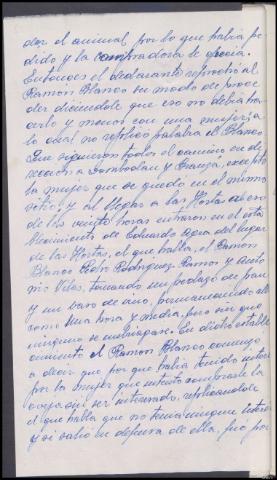 der el animal por lo que había pe
dido y la compradora le decía.
Entonces el declarante reprochó al
Ramón Blanco su modo de proce
der diciendole que eso no debia ha
cerlo y menos con una mujer, a
lo cual no replicó palabra el Blanco
Que siguieron todos el camino en di
rección a Dombodan y Brañza, excepto
la mujer que se quedó en el mismo
sitio, y al llegar a las Hortas a eso
de las veinte horas entraron en el esta
blecimiento de Eduardo Agra del lugar
de las Hortas, el que habla, el Ramón
Blanco Pedro Rodriguez Ramos y Anto
nio Vilas, tomando un pedazo de pan
y un vaso de vino, permaneciendo alli
como una hora y media, pero sin que
ninguno se embriagase. En dicho estable
cimiento el Ramón Blanco comenzo
a decir que por que habia tenido interes
por la mujer que intento comprarle la
oveja sin ser interesado, replicandole
el que habla que no tenia ningun interes
y si salió en defensa de ella, fue por